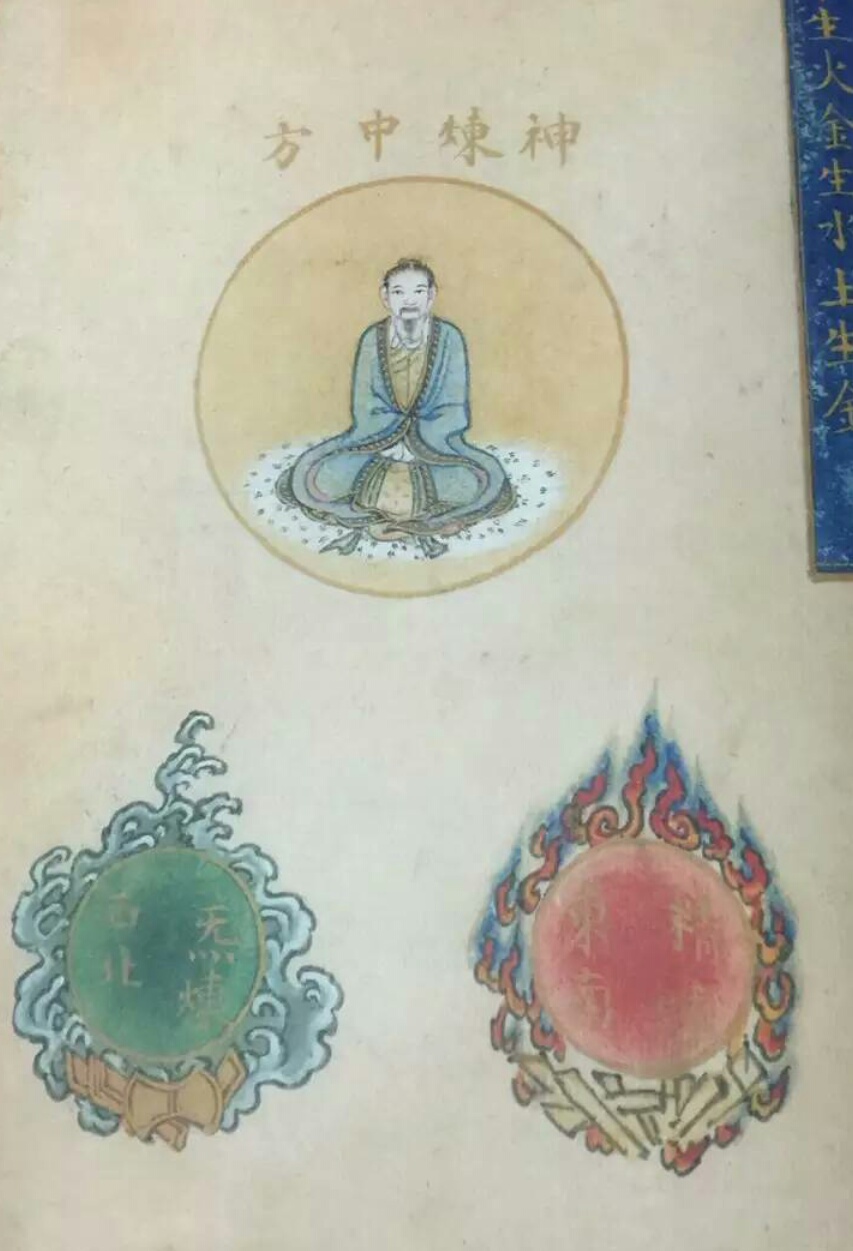 生火金生水土生金
神煉中方
精
東南
炁煉
西北